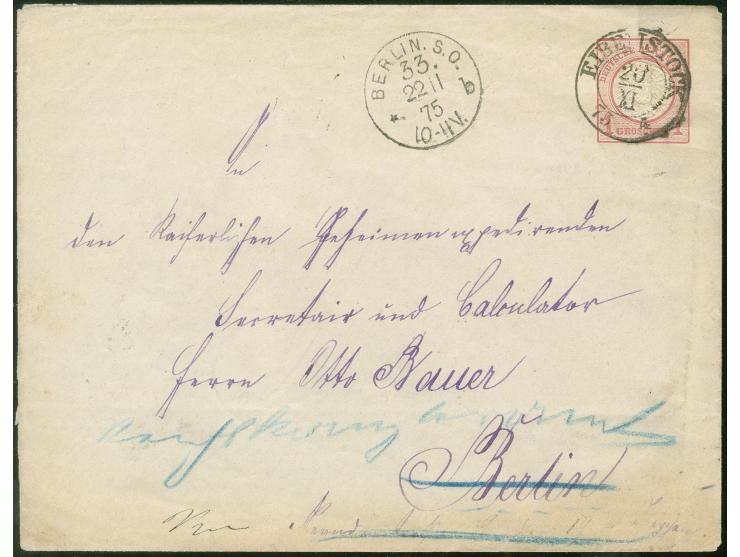 BERLIN. S.O.
33.
22 11
75
10-11V.
b
EIBENSTOCK
20
XI
75
DEUTSCHE
GROSCHEN
An
den Kaiserlichen Geheimen expedirenden
Secretair und Calculator
Herrn Otto Bauer
Berlin